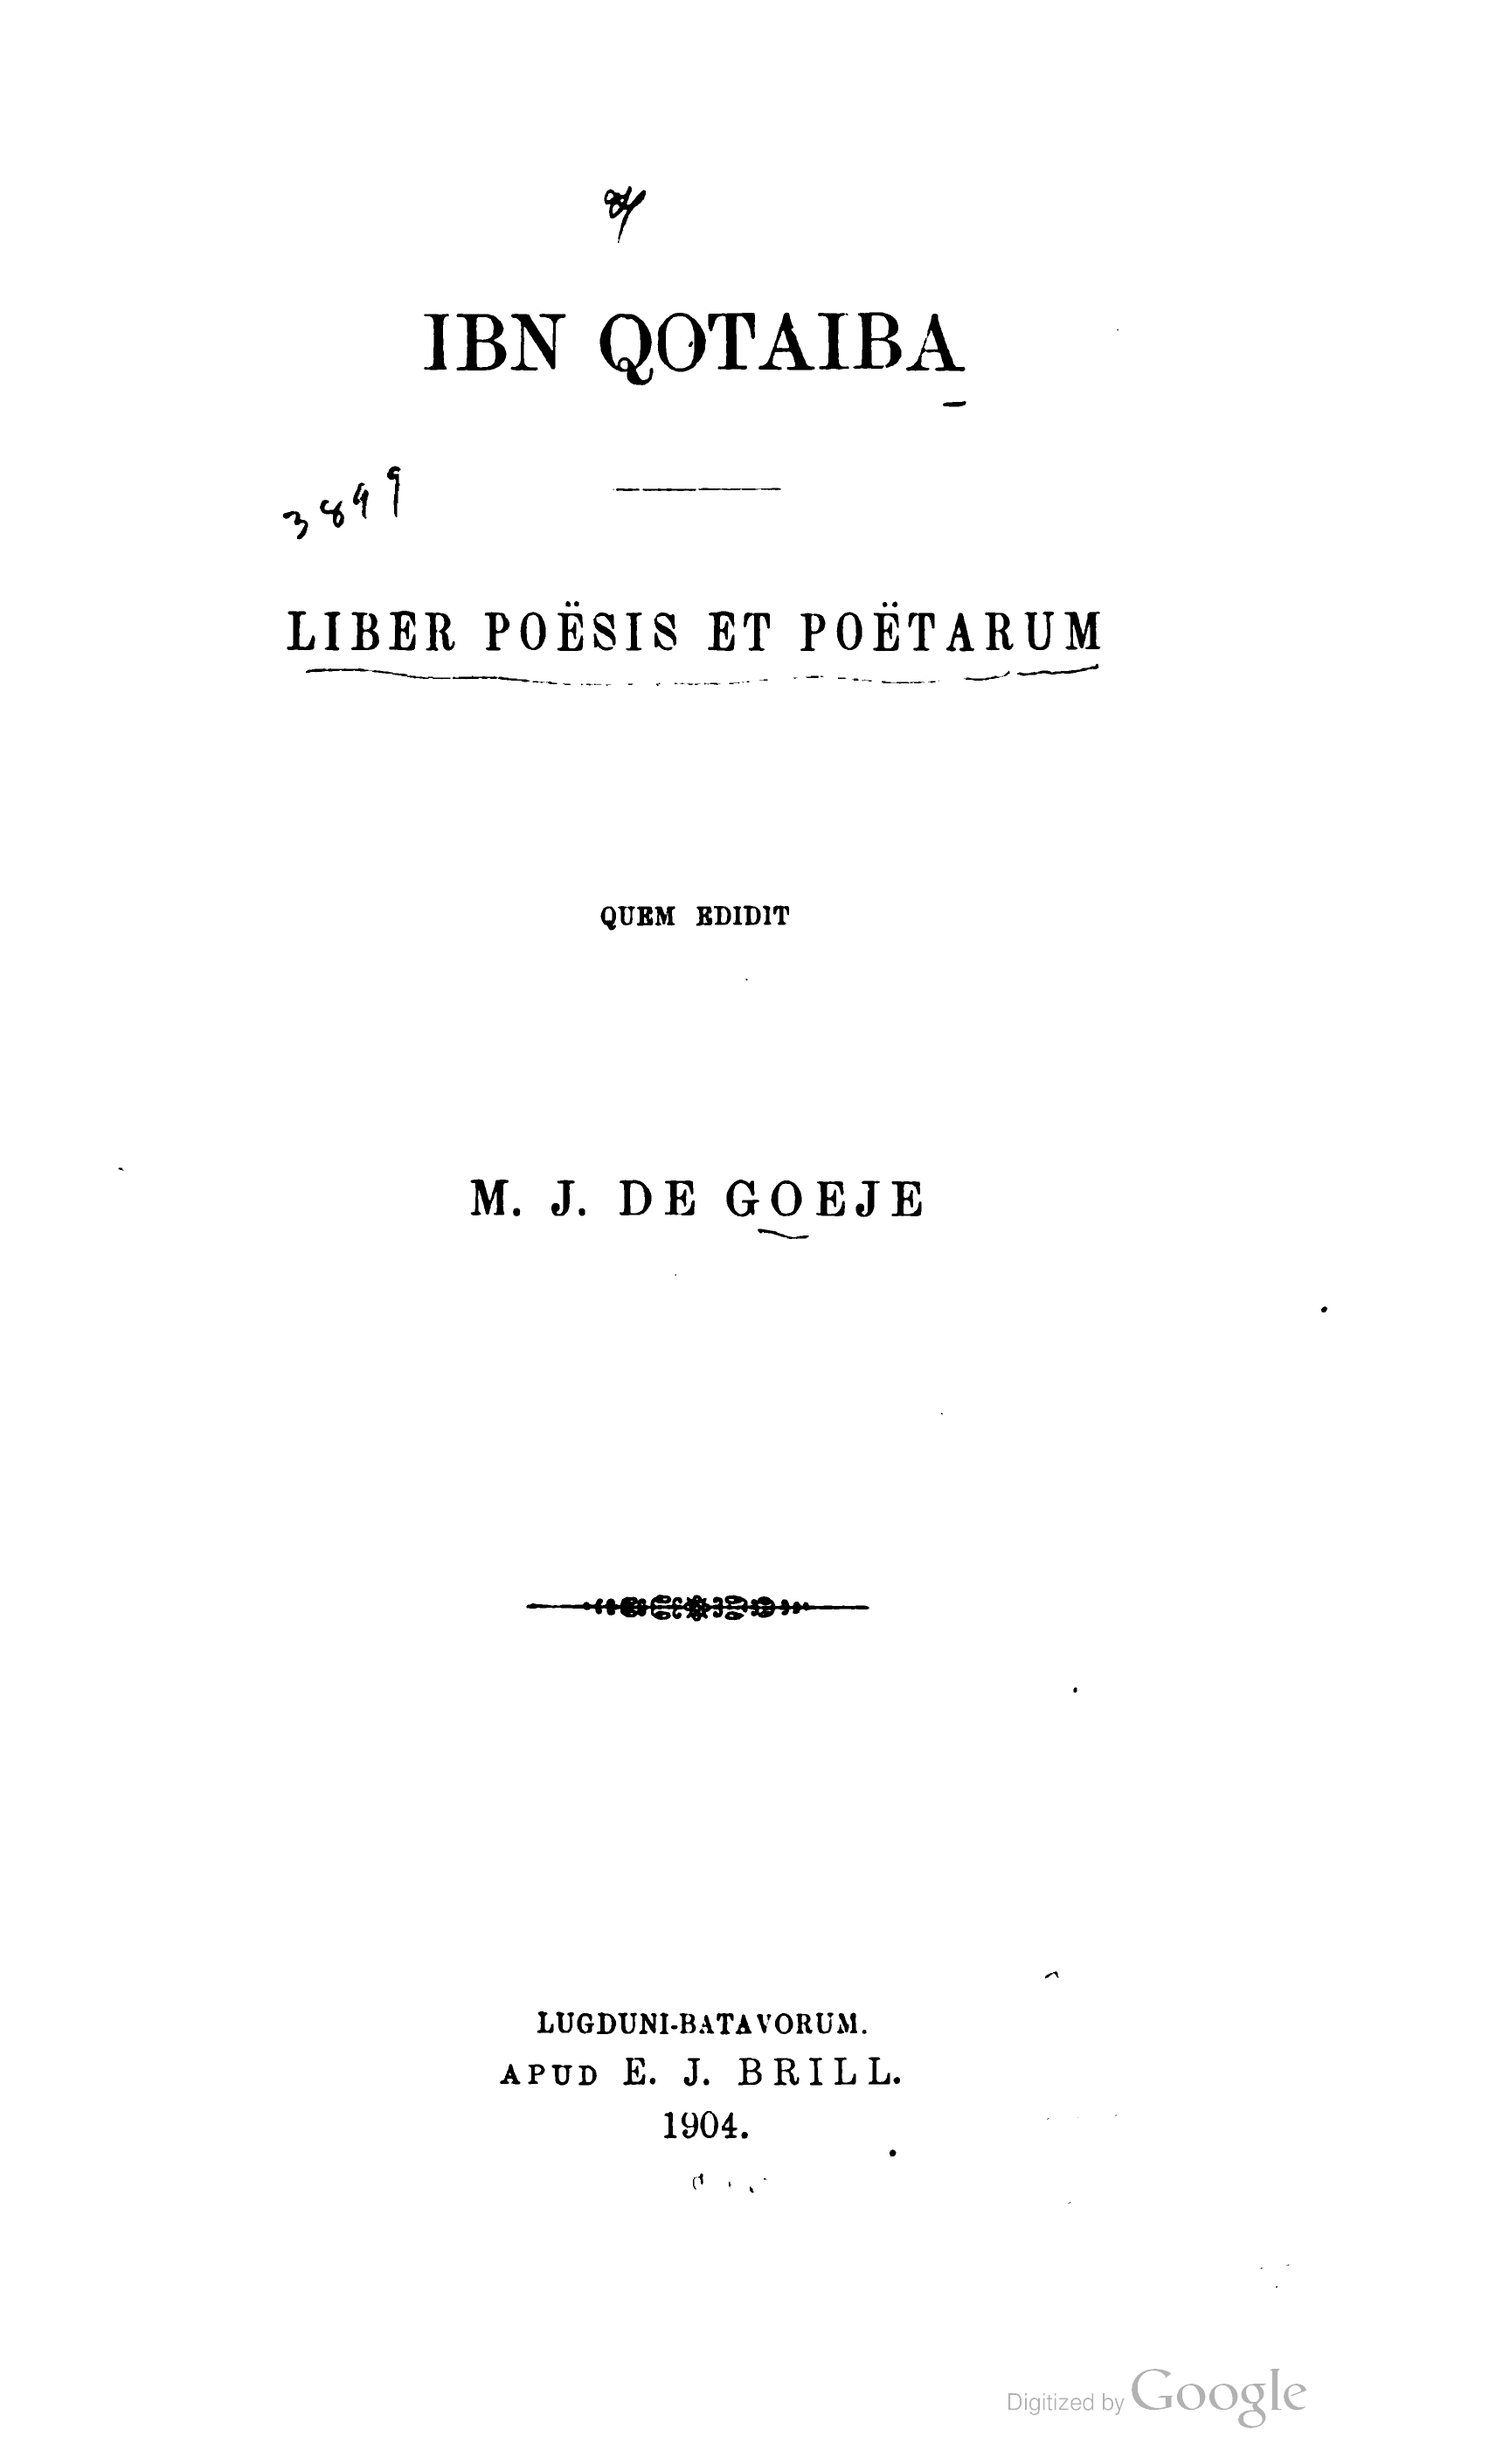 IBN QOTAIBA
3899
LIBER POËSIS ET POËTARUM
QUEM EDIDIT
M. J. DE GOEJE
LUGDUNI-BATAVORUM.
APUD E. J. BRILL.
1904.
Digitized by Google